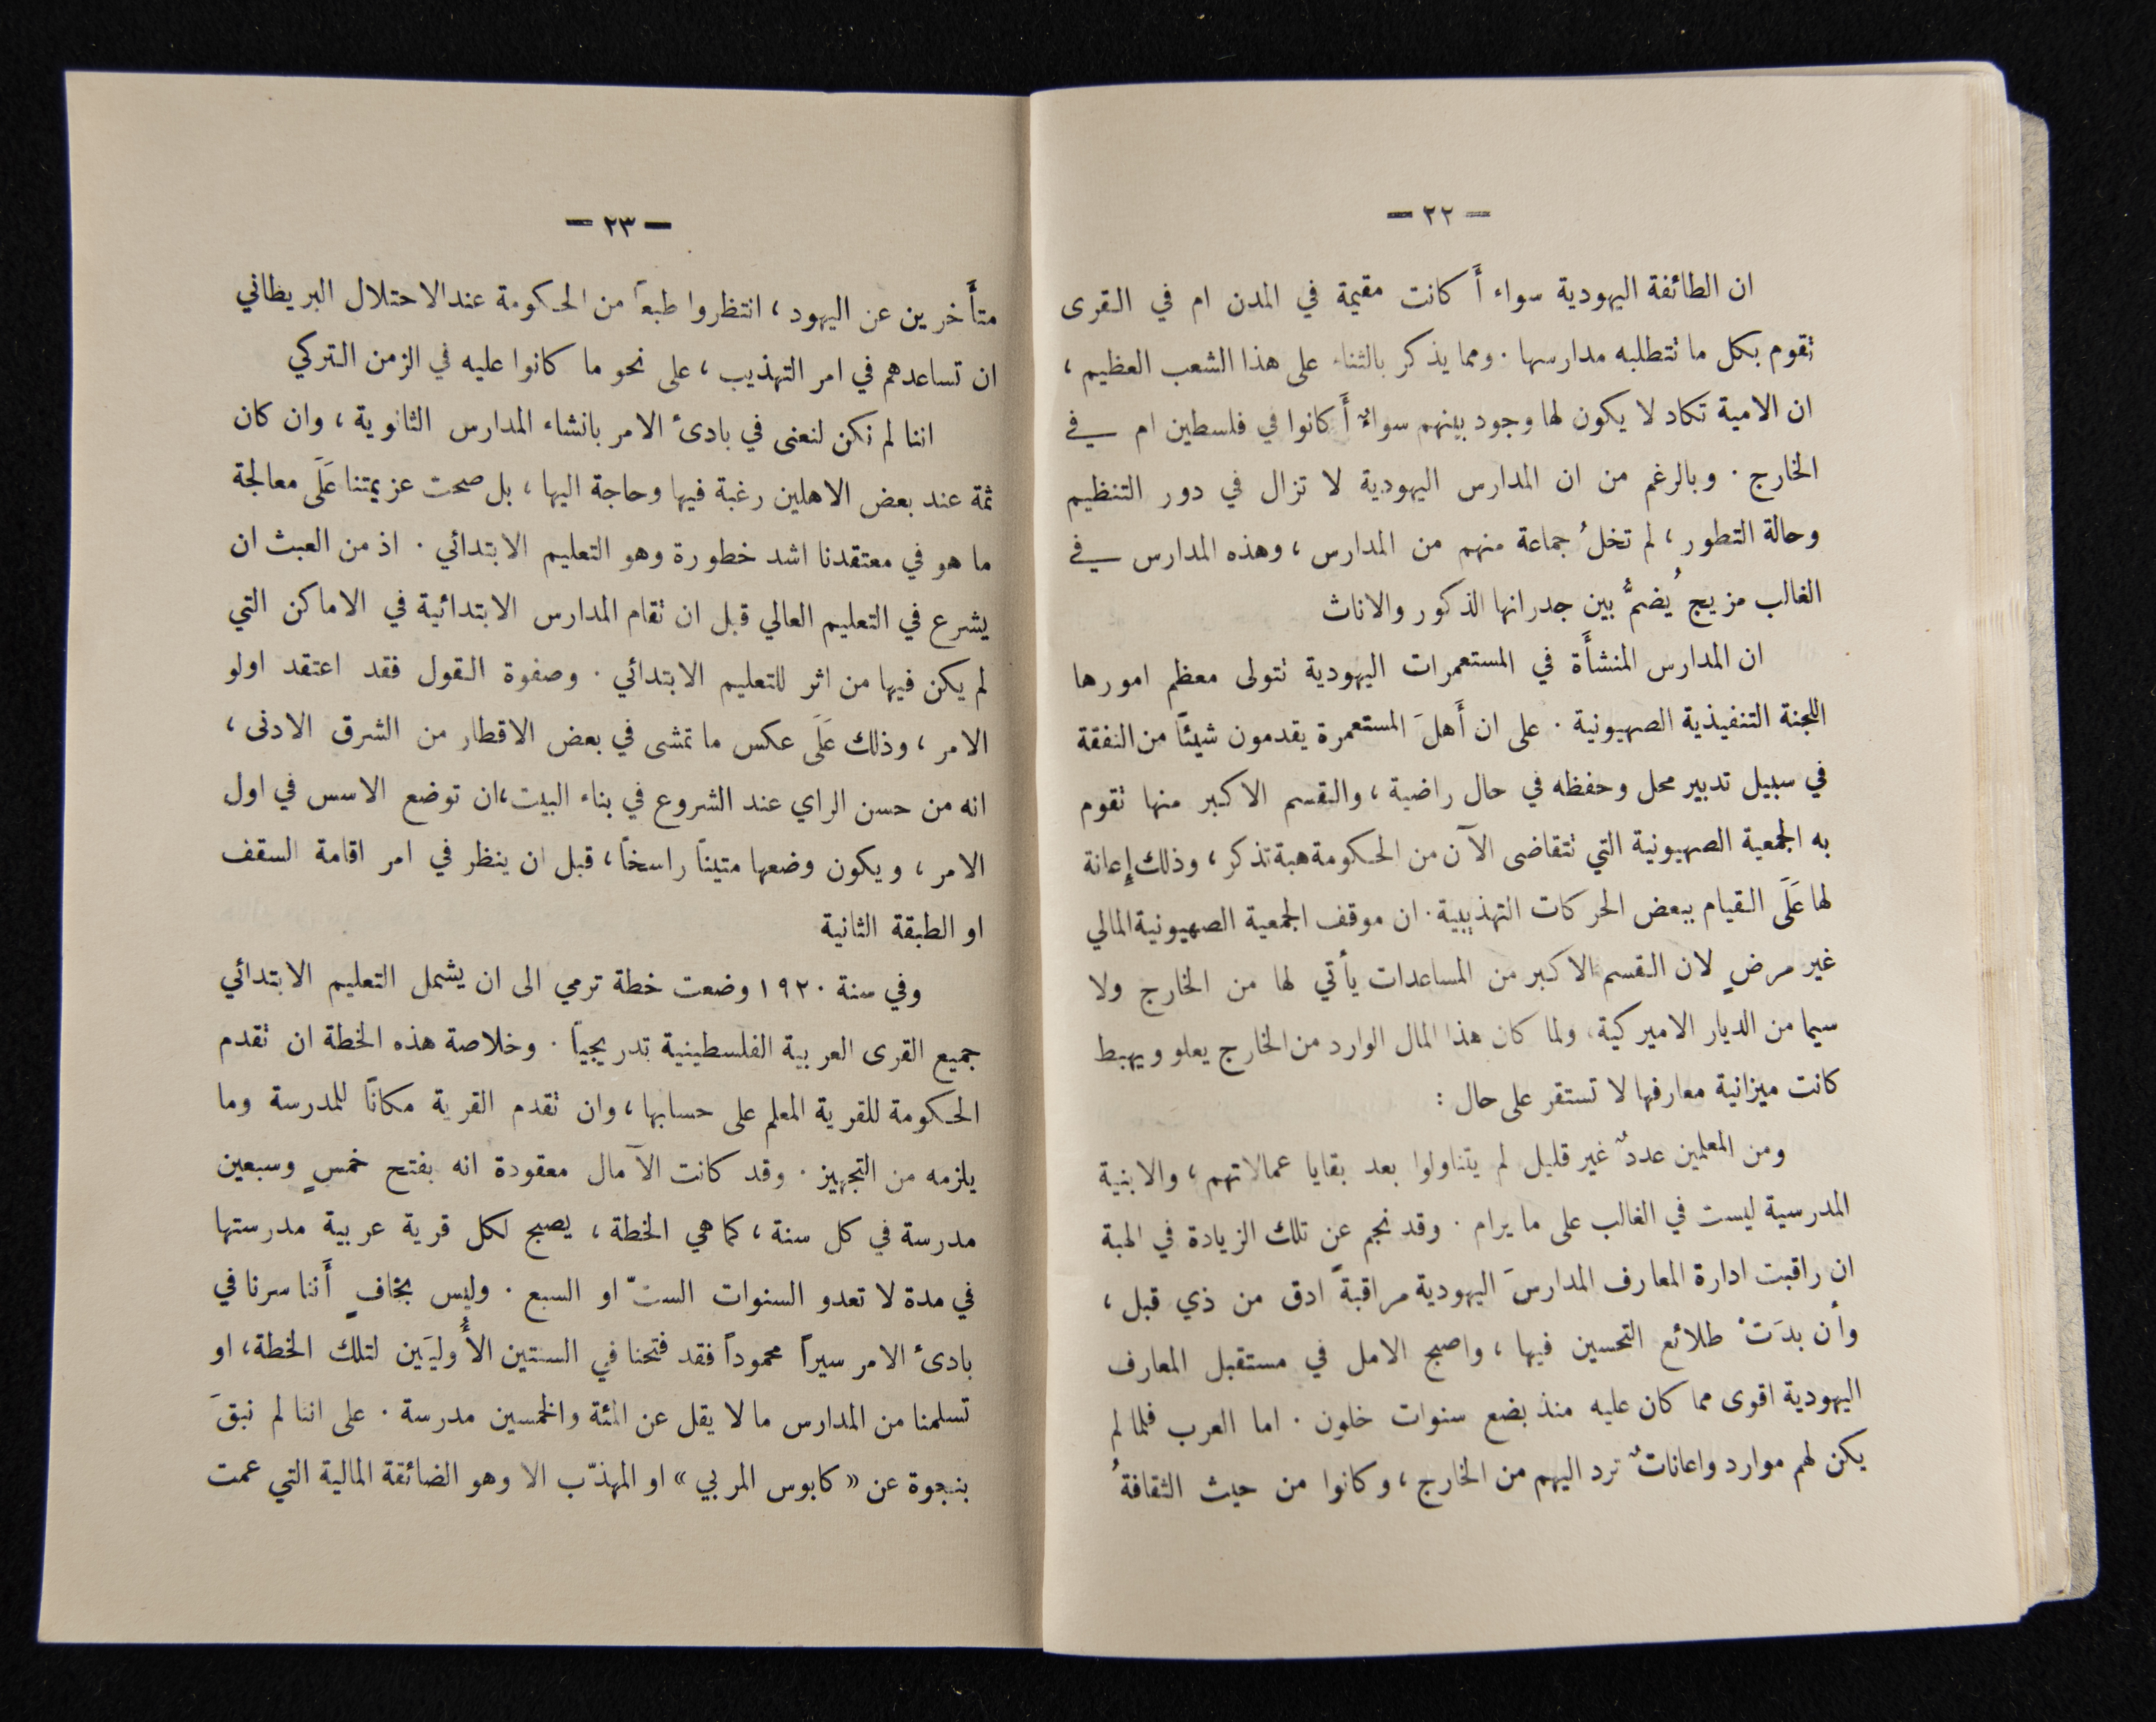 — ٢٢ —
ان الطائفة اليهودية سواء أَ كانت مقيمة في المدن ام في القرى
تقوم بكل ما تتطلبه مدارسها . ومما يذكر بالثناء على هذا الشعب العظيم ،
ان الامية تكاد لا يكون لها وجود بينهم سواءٌ أَ كانوا في فلسطين ام في
الخارج . وبالرغم من ان المدارس اليهودية لا تزال في دور التنظيم
وحالة التطور ، لم تخلُ جماعة منهم من المدارس ، وهذه المدارس في
الغالب مزيج يُضمُّ بين جدرانها الذكور والاناث
ان المدارس المنشأَة في المستعمرات اليهودية تتولى معظم امورها
اللجنة التنفيذية الصهيونية . على ان أَهلَ المستعمرة يقدمون شيئاً من النفقة
في سبيل تدبير محل وحفظه في حال راضية ، والقسم الاكبر منها تقوم
به الجمعية الصهيونية التي تتقاضى الآن من الحكومة هبة تذكر ، وذلك إِعانة
لها عَلَى القيام ببعض الحركات التهذيبية . ان موقف الجمعية الصهيونية المالي
غير مرضٍ لان القسم الاكبر من المساعدات يأتي لها من الخارج ولا
سيما من الديار الاميركية ، ولما كان هذا المال الوارد من الخارج يعلو ويهبط
كانت ميزانية معارفها لا تستقر على حال :
ومن المعلمين عددٌ غير قليل لم يتناولوا بعد بقايا عمالاتهم ، والابنية
المدرسية ليست في الغالب على ما يرام . وقد نجم عن تلك الزيادة في الهبة
ان راقبت ادارة المعارف المدارسَ اليهودية مراقبةً ادق من ذي قبل ،
وأن بدَتْ طلائع التحسين فيها ، واصبح الامل في مستقبل المعارف
اليهودية اقوى مما كان عليه منذ بضع سنوات خلون . اما العرب فلما لم
يكن لهم موارد واعاناتٌ ترد اليهم من الخارج ، وكانوا من حيث الثقافةُ
— ٢٣ —
متأَخرين عن اليهود ، انتظروا طبعاً من الحكومة عند الاحتلال البريطاني
ان تساعدهم في امر التهذيب ، على نحو ما كانوا عليه في الزمن التركي
اننا لم نكن لنعنى في بادئ الامر بانشاء المدارس الثانوية ، وان كان
ثمة عند بعض الاهلين رغبة فيها وحاجة اليها ، بل صحت عزيمتنا عَلَى معالجة
ما هو في معتقدنا اشد خطورة وهو التعليم الابتدائي . اذ من العبث ان
يشرع في التعليم العالي قبل ان تقام المدارس الابتدائية في الاماكن التي
لم يكن فيها من اثر للتعليم الابتدائي . وصفوة القول فقد اعتقد اولو
الامر ، وذلك عَلَى عكس ما تمشى في بعض الاقطار من الشرق الادنى ،
انه من حسن الراي عند الشروع في بناء البيت ، ان توضع الاسس في اول
الامر ، ويكون وضعها متيناً راسخاً ، قبل ان ينظر في امر اقامة السقف
او الطبقة الثانية
وفي سنة ١٩٢٠ وضعت خطة ترمي الى ان يشمل التعليم الابتدائي
جميع القرى العربية الفلسطينية تدريجياً . وخلاصة هذه الخطة ان تقدم
الحكومة للقرية المعلم على حسابها ، وان تقدم القرية مكاناً للمدرسة وما
يلزمه من التجهيز . وقد كانت الآمال معقودة انه بفتح خمسٍ وسبعين
مدرسة في كل سنة ، كما هي الخطة ، يصبح لكل قرية عربية مدرستها
في مدة لا تعدو السنوات الستّ او السبع . وليس بخافٍ أَننا سرنا في
بادئ الامر سيراً محموداً فقد فتحنا في السنتين الأُوليَين لتلك الخطة ، او
تسلمنا من المدارس ما لا يقل عن المئة والخمسين مدرسة . على اننا لم نبقَ
بنجوة عن « كابوس المربي » او المهذّب الا وهو الضائقة المالية التي عمت